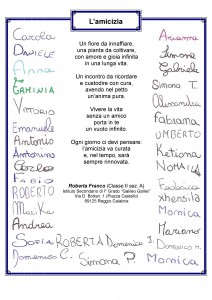 L'amicizia
Carola
DANIELE
Anna
GRMINIA
VITTORIO
Emanuele
Antonio
Antonino
Carlo
FABIO
ROBERTO
Andrea
Un fiore da innaffiare,
una pianta da coltivare,
con amore e gioia infinita
in una lunga vita.
Un incontro da ricordare
e custodire con cura,
avendo nel petto
un'anima pura.
Vivere la vita
senza un amico
porta in te
un vuoto infinito.
Ogni giorno ci devi pensare:
l'amicizia va curata
e, nel tempo, sarà
sempre rinnovata.
Roberta Franco (Classe II sez. A)
Istituto Secondario di I° Grado "Galileo Galilei"
Via D. Bottari, 1 (Piazza Castello)
89125 Reggio Calabria
Arianna
Simone
Gabriele
Simona T.
Alessandra
Fabiana
UMBERTO
Ketiona
NOMAN
Federica
xhensila
Monica
Mariano
SOFIA ROBERTA Domenico I. DOMENICO M.
Domenico C. Simona P. Monica